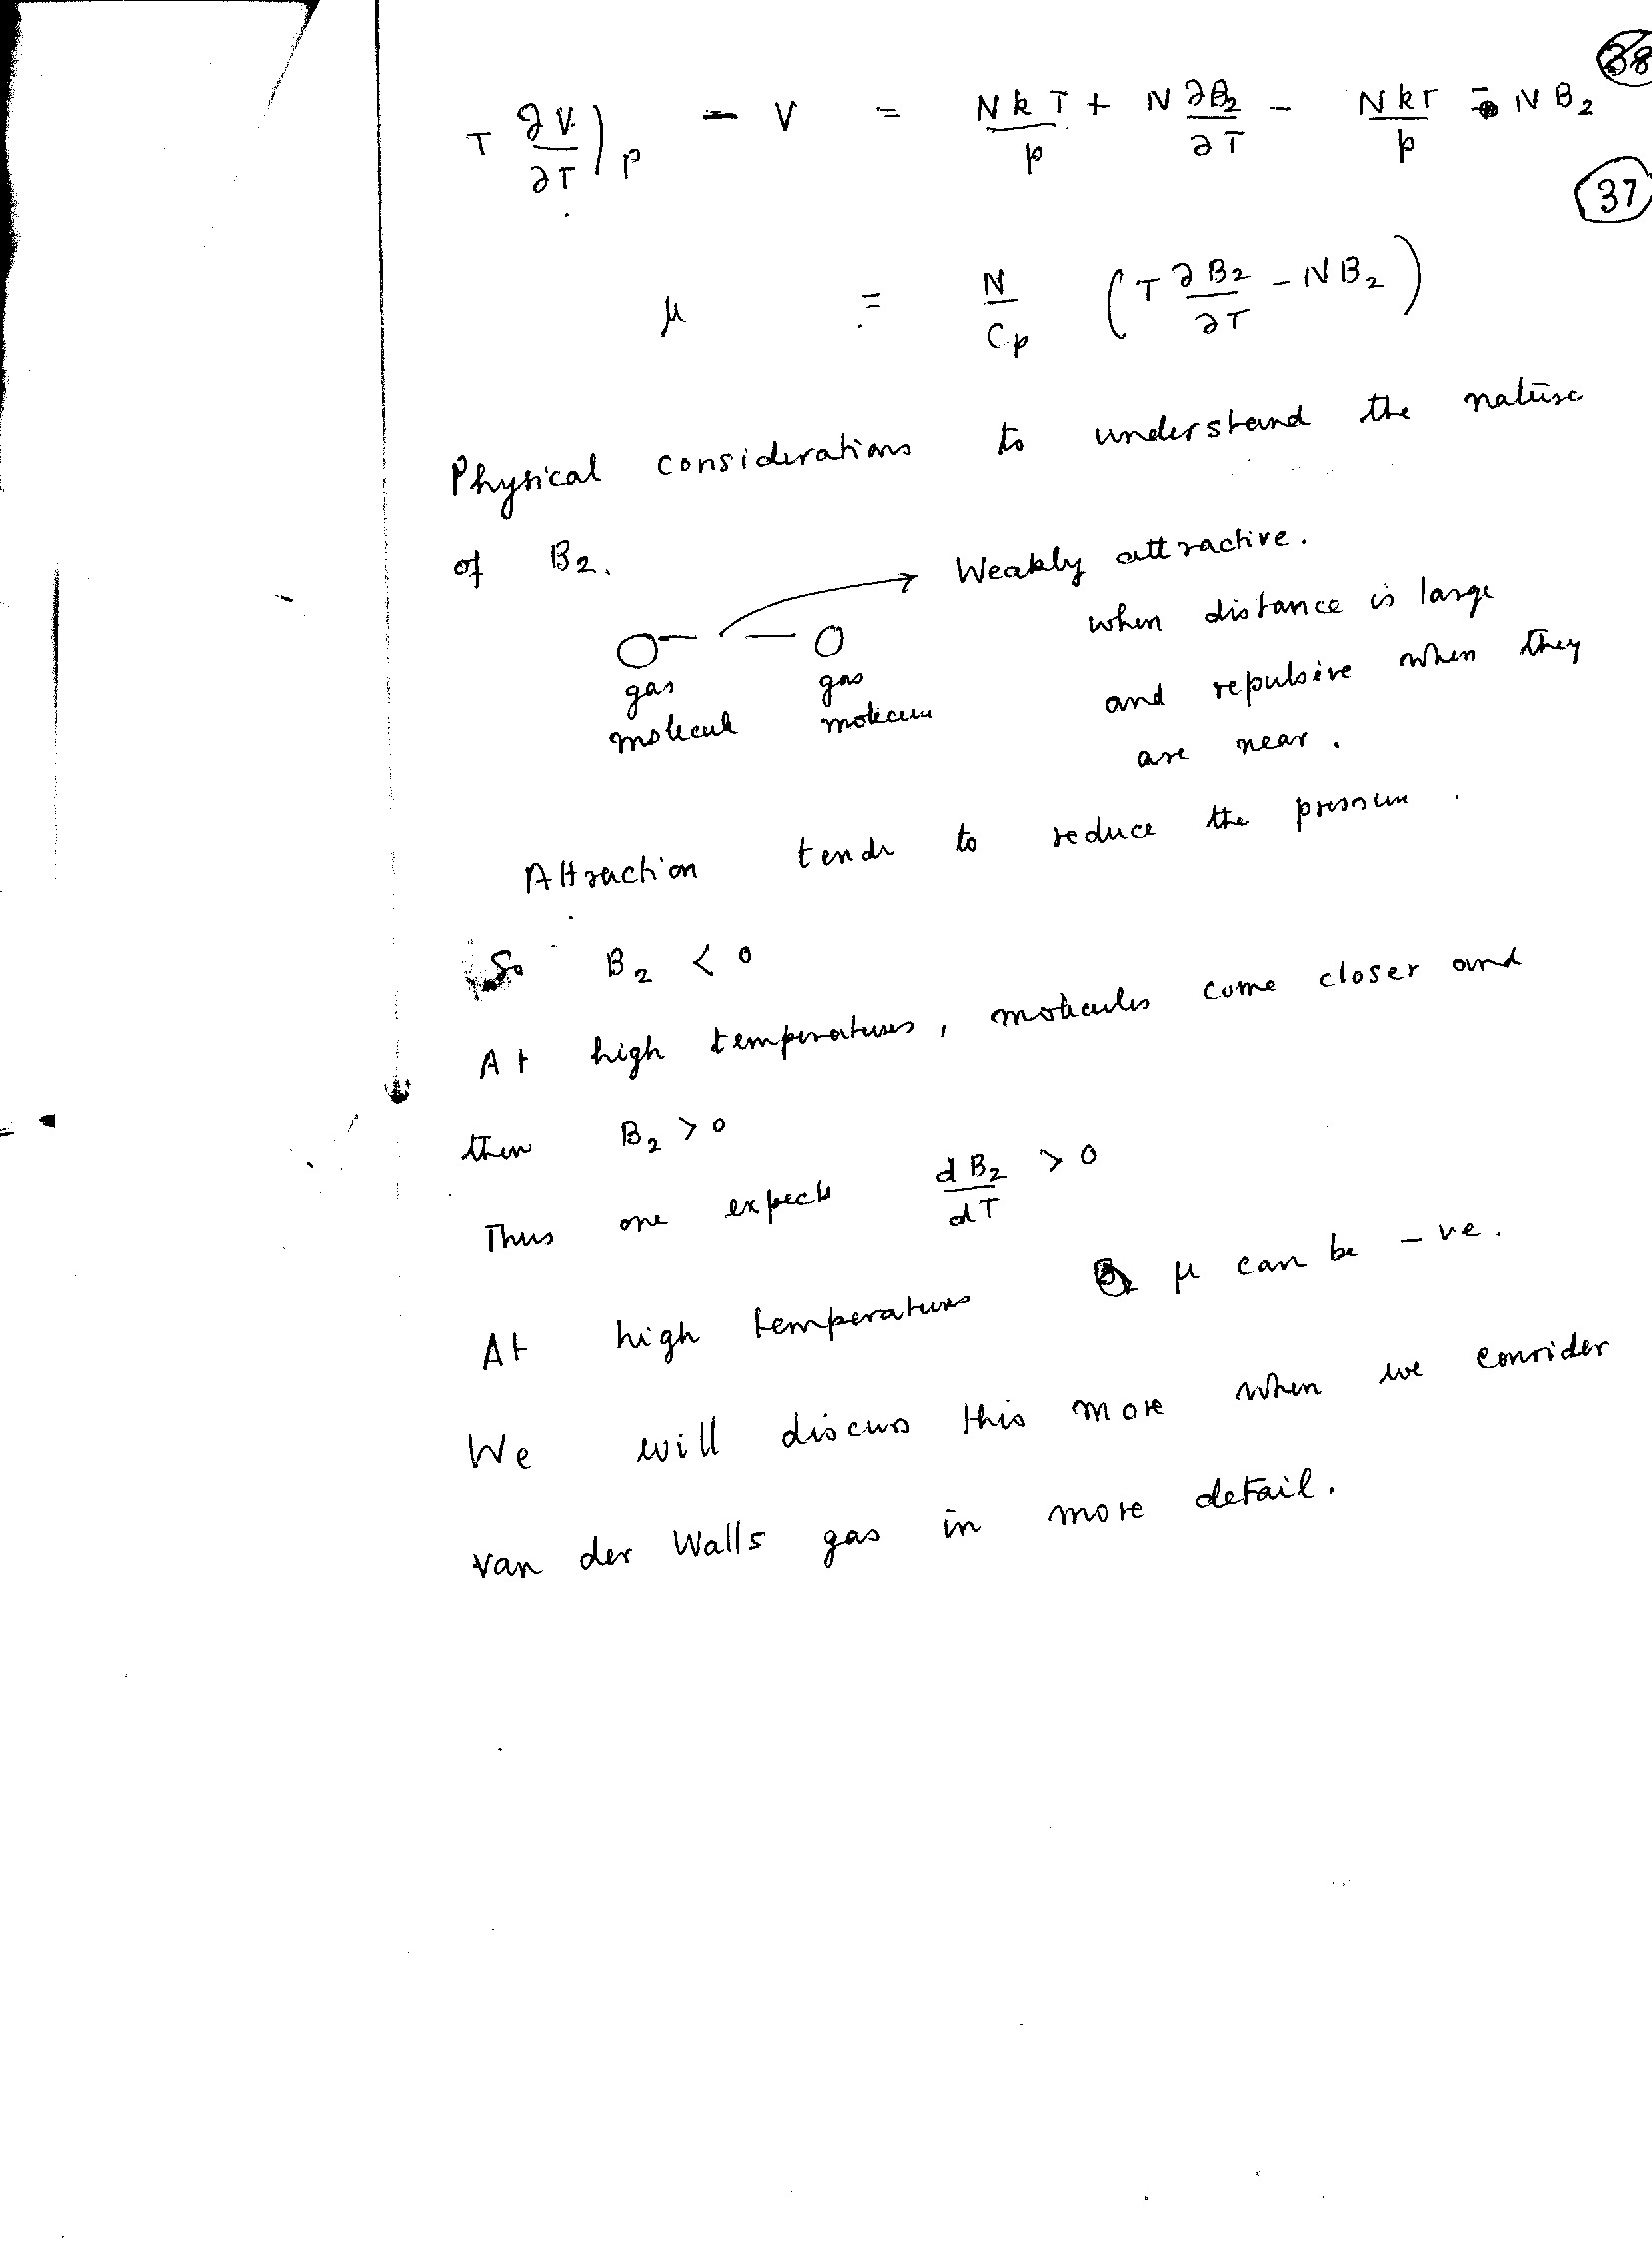 38
T ∂V/∂T)_p - V = NkT/p + N ∂B₂/∂T - NkT/p - NB₂
37
μ = N/C_p (T ∂B₂/∂T - NB₂)
Physical considerations to understand the nature
of B₂.
Weakly attractive.
when distance is large
and repulsive when they
are near.
gas molecule
gas molecule
Attraction tends to reduce the pressure.
So B₂ < 0
At high temperatures, molecules come closer and
then B₂ > 0
Thus one expects dB₂/dT > 0
At high temperatures μ can be -ve.
We will discuss this more when we consider
van der Walls gas in more detail.